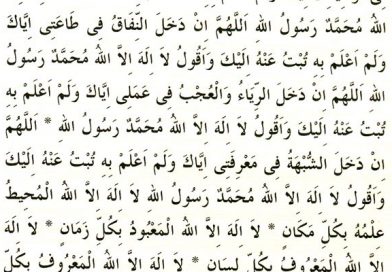 اللهُ مُحَمَّدٌ رَسُولُ اللهِ اَللّٰهُمَّ اِنْ دَخَلَ النِّفَاقُ فِى طَاعَتِى اِيَّاكَ
وَلَمْ اَعْلَمْ بِهِ تُبْتُ عَنْهُ اِلَيْكَ وَاَقُولُ لَا اِلٰهَ اِلَّا اللهُ مُحَمَّدٌ رَسُولُ
اللهِ اَللّٰهُمَّ اِنْ دَخَلَ الرِّيَاءُ وَالْعُجْبُ فِى عَمَلِى اِيَّاكَ وَلَمْ اَعْلَمْ بِهِ
تُبْتُ عَنْهُ اِلَيْكَ وَاَقُولُ لَا اِلٰهَ اِلَّا اللهُ مُحَمَّدٌ رَسُولُ اللهِ * اَللّٰهُمَّ
اِنْ دَخَلَ الشُّبْهَةُ فِى مَعْرِفَتِى اِيَّاكَ وَلَمْ اَعْلَمْ بِهِ تُبْتُ عَنْهُ اِلَيْكَ
وَاَقُولُ لَا اِلٰهَ اِلَّا اللهُ مُحَمَّدٌ رَسُولُ اللهِ لَا اِلٰهَ اِلَّا اللهُ الْمُحِيطُ
عِلْمُهُ بِكُلِّ مَكَانٍ * لَا اِلٰهَ اِلَّا اللهُ الْمَعْبُودُ بِكُلِّ زَمَانٍ * لَا اِلٰهَ
اِلَّا اللهُ الْمَعْرُوفُ بِكُلِّ لِسَانٍ * لَا اِلٰهَ اِلَّا اللهُ الْمَعْرُوفُ بِكُلِّ